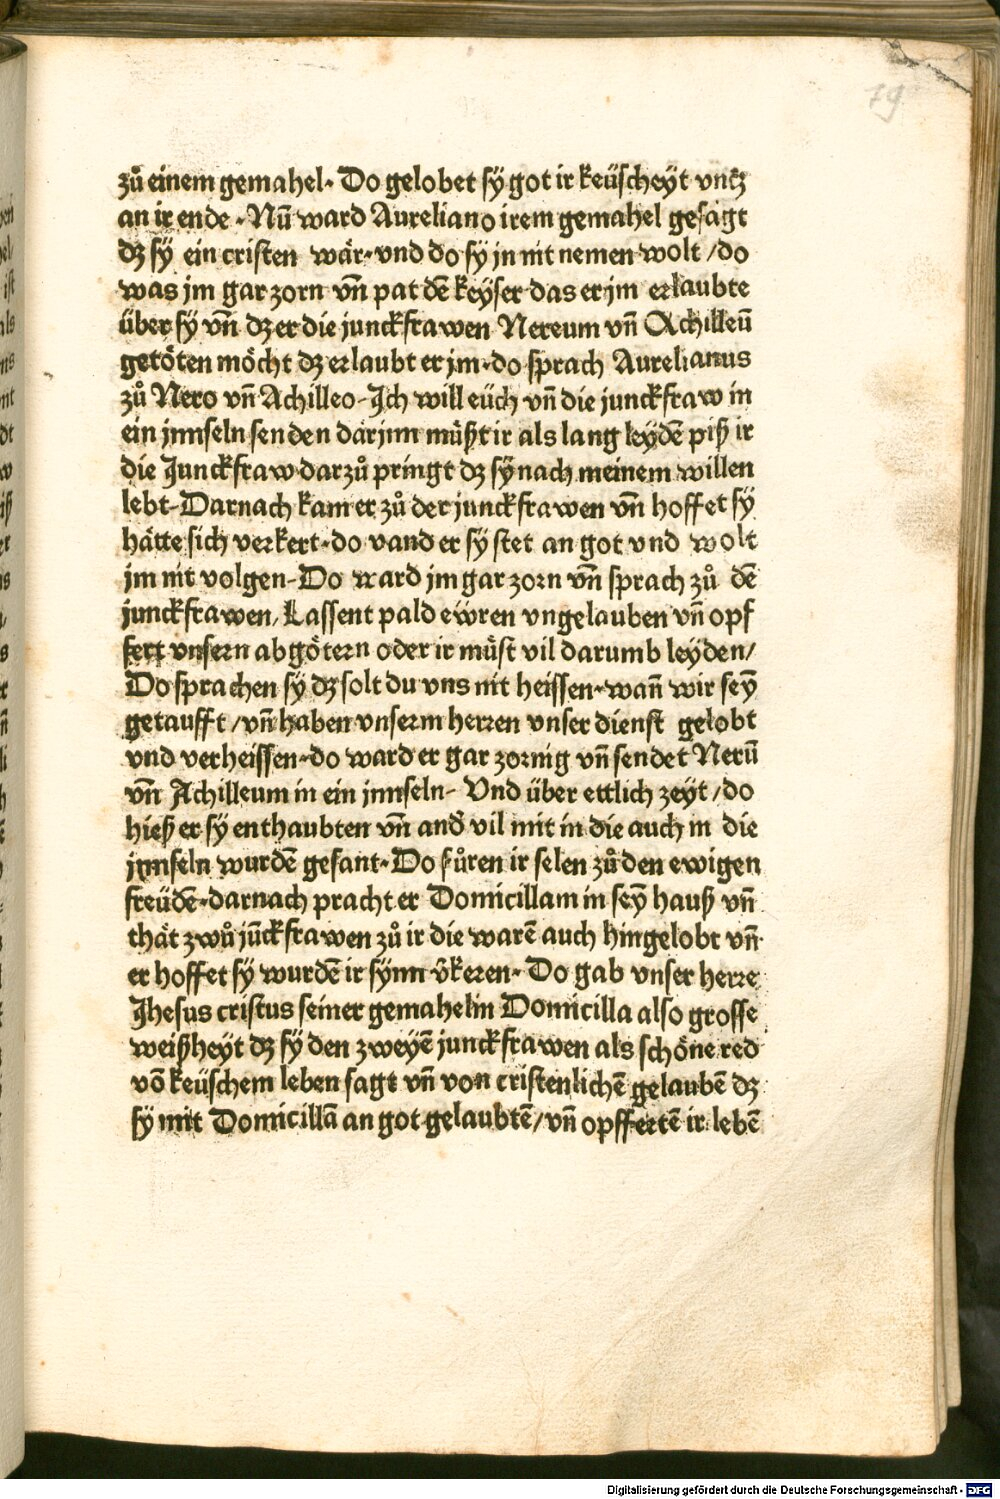 79
zů einem gemahel. Do gelobet sÿ got ir keüscheyt vncz
an ir ende. Nū ward Aureliano irem gemahel gesagt
dz sÿ ein cristen wär. vnd do sÿ jn nit nemen wolt / do
was jm gar zorn vn̄ pat dē keÿser das er jm erlaubte
über sÿ vn̄ dz er die junckfrawen Nereum vn̄ Achilleū
getöten möcht dz erlaubt er jm. do sprach Aurelianus
zů Nero vn̄ Achilleo. Ich will eüch vn̄ die junckfraw in
ein jnnseln senden darjnn müßt ir als lang leydē piß ir
die Junckfraw darzů pringt dz sÿ nach meinem willen
lebt. Darnach kam er zů der junckfrawen vn̄ hoffet sÿ
hätte sich verkert. do vand er sÿ stet an got vnd wolt
jm nit volgen. Do ward jm gar zorn vn̄ sprach zů dē
junckfrawen, Lassent pald eẅren vngelauben vn̄ opf
fert vnsern abgötern oder ir müst vil darumb leyden /
Do sprachen sÿ dz solt du vns nit heissen. wan̄ wir seȳ
getaufft / vn̄ haben vnserm herren vnser dienst gelobt
vnd verheissen. do ward er gar zornig vn̄ sendet Nerū
vn̄ Achilleum in ein jnnseln. Vnd über ettlich zeyt / do
hieß er sÿ enthaubten vn̄ and̄ vil mit in die auch in die
jnnseln wurdē gesant. Do fůren ir selen zů den ewigen
freüdē. darnach pracht er Domicillam in seȳ hauß vn̄
thät zwů jūckfrawen zů ir die warē auch hingelobt vn̄
er hoffet sÿ wurdē ir sÿnn v̄keren. Do gab vnser herre
Jhesus cristus seiner gemahelin Domicilla also grosse
weißheyt dz sÿ den zweyē junckfrawen als schöne red
vō keüschem leben sagt vn̄ von cristenlichē gelaubē dz
sÿ mit Domicillā an got gelaubtē / vn̄ opffertē ir lebē
Digitalisierung gefördert durch die Deutsche Forschungsgemeinschaft - DFG